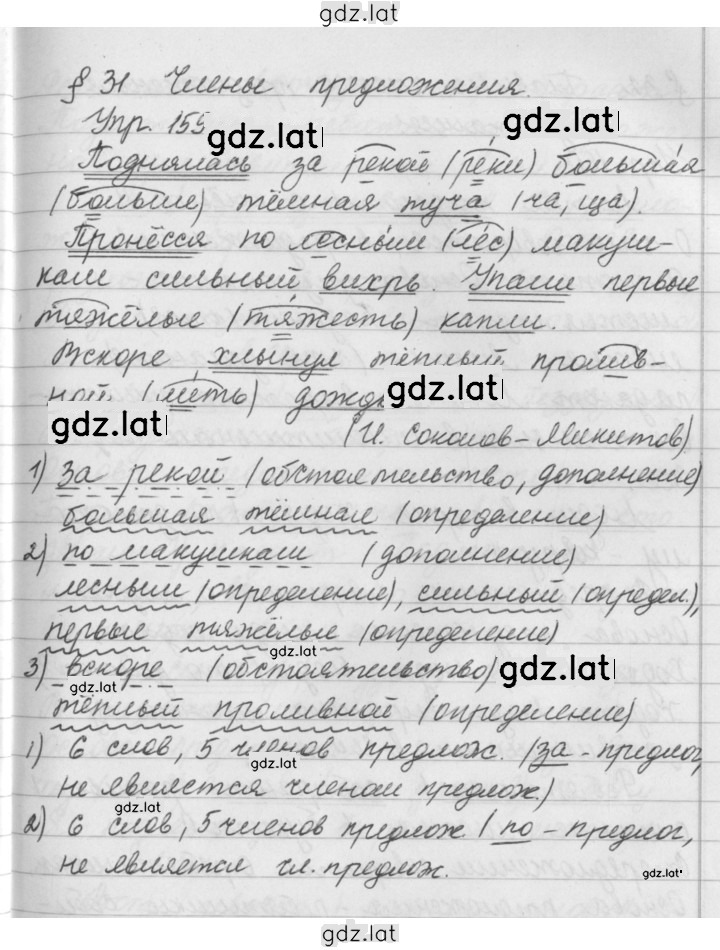 gdz.lat
§ 31 Члены предложения.
Упр. 155
gdz.lat gdz.lat
Поднялась за рекой (реки) большая
(больше) тёмная туча (ча, ща).
Пронёсся по лесным (лес) макуш-
кам сильный вихрь. Упали первые
тяжёлые (тяжесть) капли.
Вскоре хлынул тёплый пролив-
ной (лить) дожд gdz.lat
gdz.lat
(И. Соколов-Микитов)
1) за рекой (обстоятельство, дополнение)
большая тёмная (определение)
2) по макушкам (дополнение)
лесным (определение), сильный (определ.),
первые тяжёлые (определение)
gdz.lat
3) вскоре (обстоятельство) gdz.lat
gdz.lat
тёплый проливной (определение)
1) 6 слов, 5 членов предлож. (за - предлог,
gdz.lat
не является членом предлож.)
gdz.lat
2) 6 слов, 5 членов предлож. (по - предлог,
не является чл. предлож.
gdz.lat
gdz.lat